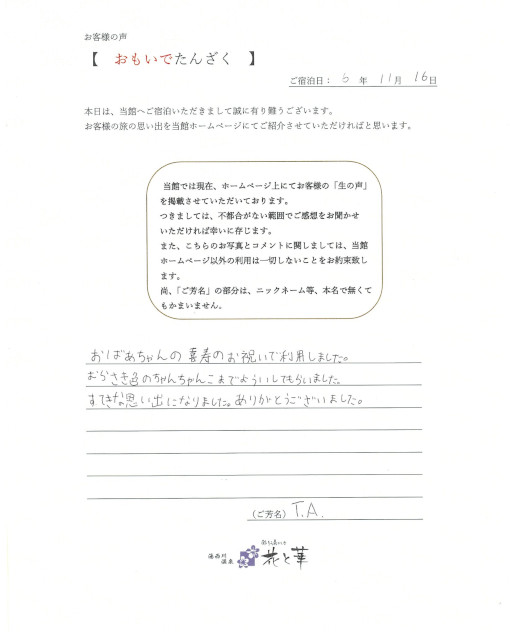 お客様の声
【 おもいでたんざく 】
ご宿泊日： 6 年 11 月 16 日
本日は、当館へご宿泊いただきまして誠に有り難うございます。
お客様の旅の思い出を当館ホームページにてご紹介させていただければと思います。
当館では現在、ホームページ上にてお客様の「生の声」
を掲載させていただいております。
つきましては、不都合がない範囲でご感想をお聞かせ
いただければ幸いに存じます。
また、こちらのお写真とコメントに関しましては、当館
ホームページ以外の利用は一切しないことをお約束致し
ます。
尚、「ご芳名」の部分は、ニックネーム等、本名で無くて
もかまいません。
おばあちゃんの喜寿のお祝いで利用しました。
むらさき色のちゃんちゃんこまでよういしてもらいました。
すてきな思い出になりました。ありがとうございました。
（ご芳名） T.A.
湯西川
温泉
花と華